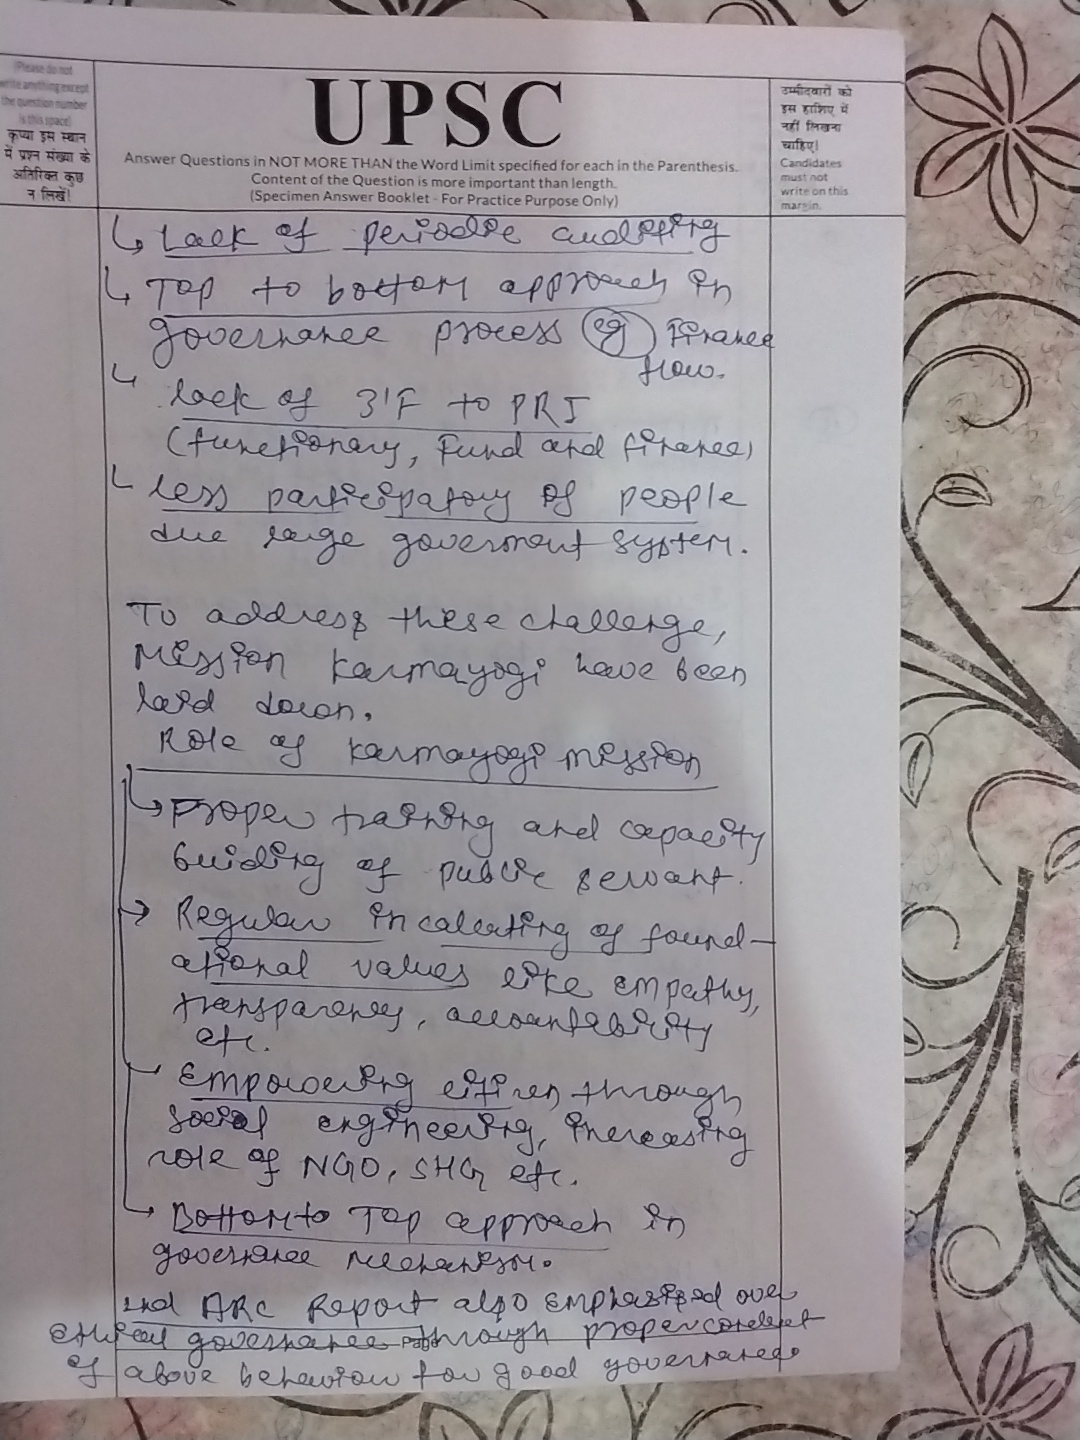 (Please do not
write anything except
the question number
is this space)
कृप्या इस स्थान
में प्रश्न संख्या के
अतिरिक्त कुछ
न लिखें!
UPSC
Answer Questions in NOT MORE THAN the Word Limit specified for each in the Parenthesis.
Content of the Question is more important than length.
(Specimen Answer Booklet - For Practice Purpose Only)
उम्मीदवारों को
इस हाशिए में
नहीं लिखना
चाहिए!
Candidates
must not
write on this
margin.
↳ Lack of periodic auditing
↳ Top to bottom approach in
governance process eg finance
flow.
↳ lack of 3'F to PRI
(functionary, Fund and finance)
↳ less participatory of people
due large goverment system.
To address these challenge,
Mission karmayogi have been
laid down.
Role of karmayogi mission
↳ Proper training and capacity
building of public servant.
→ Regular incalcating of found-
ational values like empathy,
transparency, accountability
etc.
Empowering citizen through
social engineering, increasing
role of NGO, SHG etc.
↳ Bottom to Top approach in
governance mechanism.
2nd ARC Report also emphasised over
ethical governance through proper conduct
Page
of above behaviour for good governance.